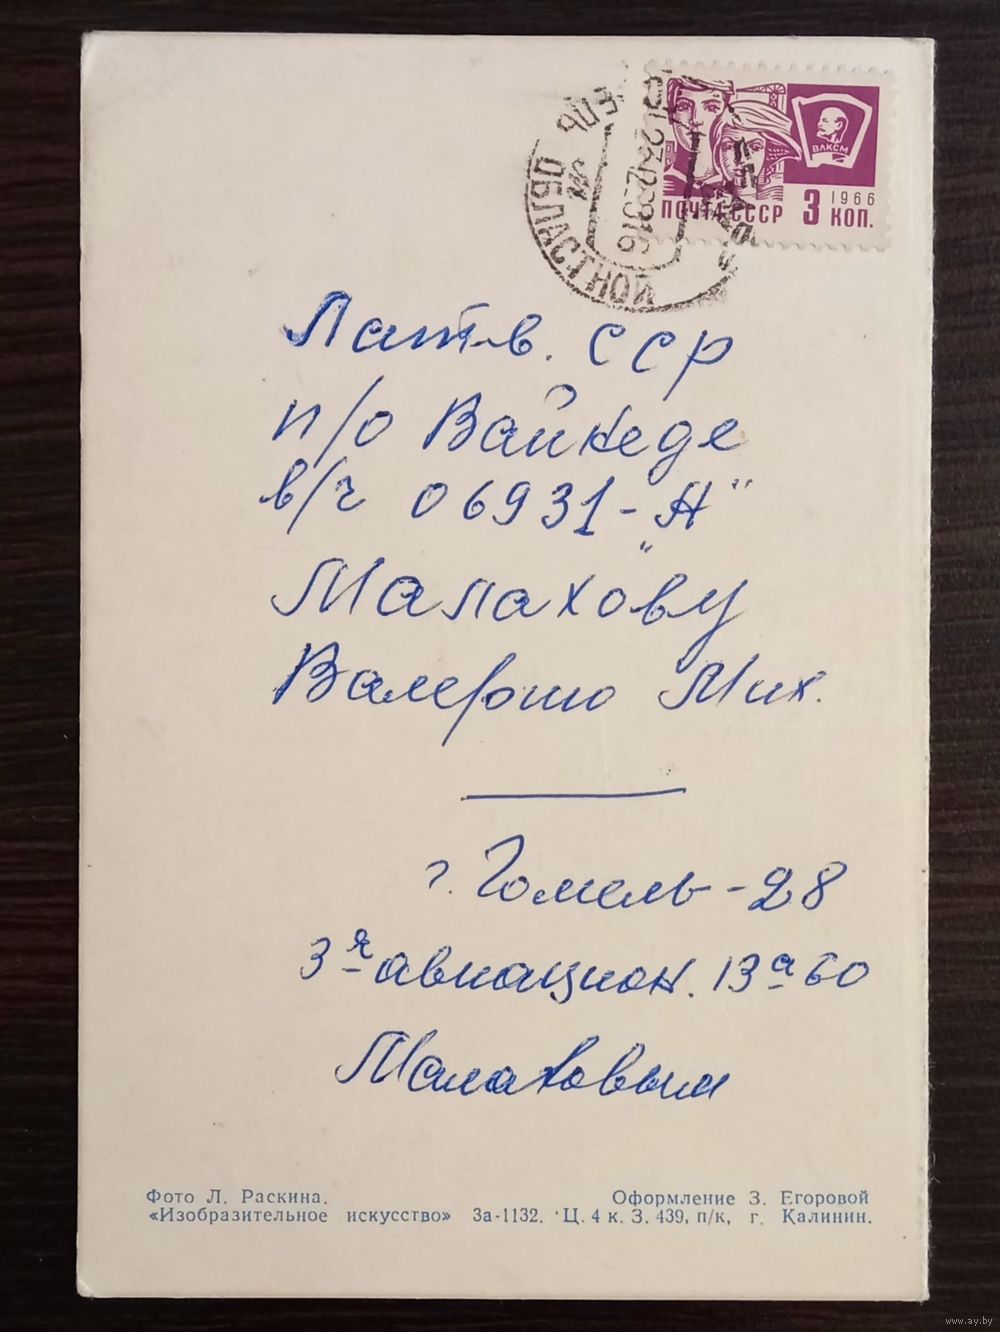 ВЛКСМ
ПОЧТА СССР 3 КОП. 1966
ОБЛАСТНОЙ
Латв. ССР
п/о Вайнеде
в/ч 06931-„А"
Малахову
Валерию Мих.
г. Гомель-28
3я авиацион. 13а 60
Малаховым
Фото Л. Раскина. Оформление З. Егоровой
«Изобразительное искусство» 3а-1132. Ц. 4 к. З. 439, п/к, г. Калинин.
www.ay.by